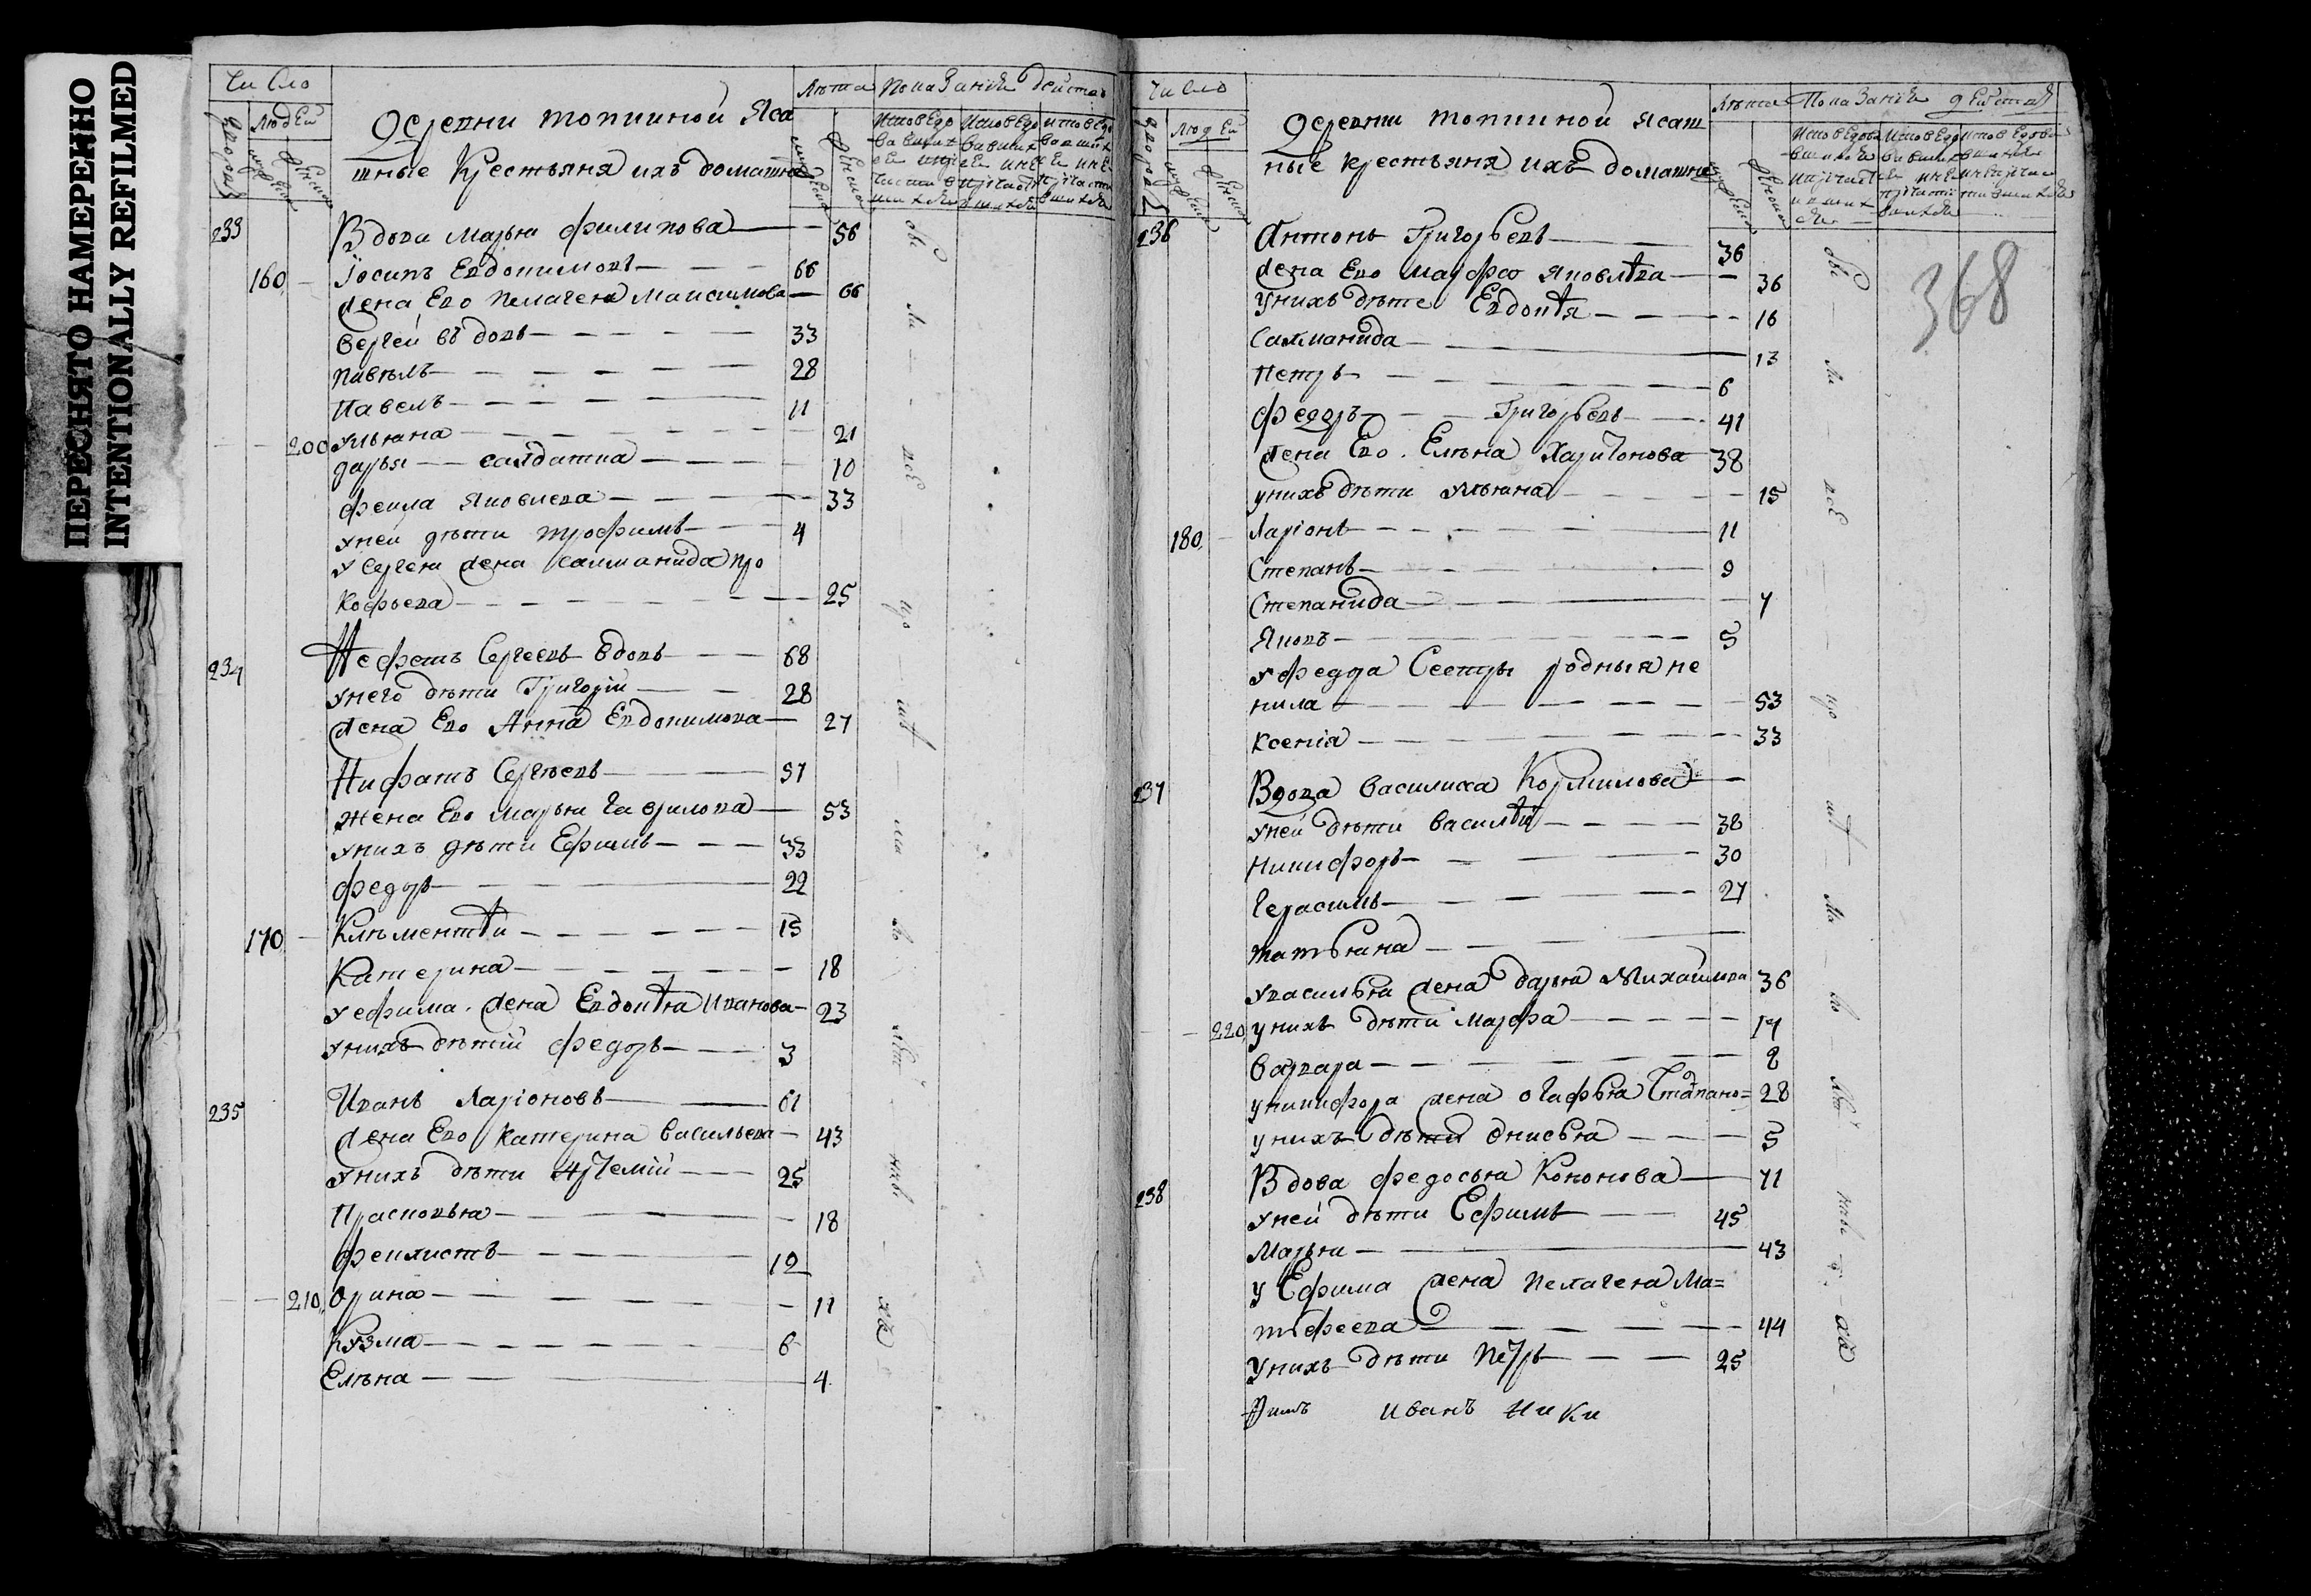 ПЕРЕСНЯТО НАМЕРЕННО
INTENTIONALLY REFILMED
Число
людей
Деревни топкиной Яса
шные Крестьяня ихъ домашние
Лѣта
Показание действ
233 Вдова Марья филипова 56
160 Їосипъ Евдокимовъ 66
жена Ево пелагея Максимова 66
Сергей вдовъ 33
28
Павелъ 11
200 Ульяна 21
дарья салдатка 10
фекла Яковлева 33
у ней дѣти трофимъ 4
у Сергея жена Саломанида про
кофьева 25
234 Нефетъ Сергеевъ вдовъ 68
у него дѣти Григорїй 28
жена Ево Анна Евдокимова 27
Нифатъ Сергѣевъ 57
жена Ево Марья Гаврилова 53
у нихъ дѣти Ефимъ 33
федоръ 22
170 Клѣментїи 15
Катерина 18
у ефима жена Евдокїя Иванова 23
у нихъ дѣтїй федоръ 3
235 Иванъ Ларїоновъ 61
жена Ево Катерина Васильева 43
у нихъ дѣти Артемїй 25
Прасковья 18
феклистъ 12
210 Орина 11
Кузма 6
Елѣна 4
Число
людей
Деревни топкиной Ясаш
ные крестьяня ихъ домашние
Лѣта
Показание действ
368
236 Антонъ Григорьевъ 36
жена Ево Марфа Яковлѣва 36
у нихъ дѣте Евдокїя 16
Саломанида 13
Петръ 6
федоръ Григорьевъ 41
жена Ево Елѣна Харитонова 38
у нихъ дѣти Ульяна 15
180 Ларїонъ 11
Степанъ 9
Степанида 7
Яковъ 5
у федора Сестры родныя не
нила 53
Ксенїя 33
237 Вдова Василиса Кормилова
у ней дѣти Василїй 38
Никифоръ 30
Герасимъ 27
татьяна
у василья жена дарья Михайлова 36
220 у нихъ дѣти Марфа 17
варвара 8
у никифора жена огафья Стѣпано= 28
у нихъ дѣти Онисья 5
238 Вдова федосья Кононова 71
у ней дѣти Ефимъ 45
Марья 43
у Ефима жена пелагея Ма=
тфеева 44
у нихъ дѣти Петръ 25
Иванъ Ники